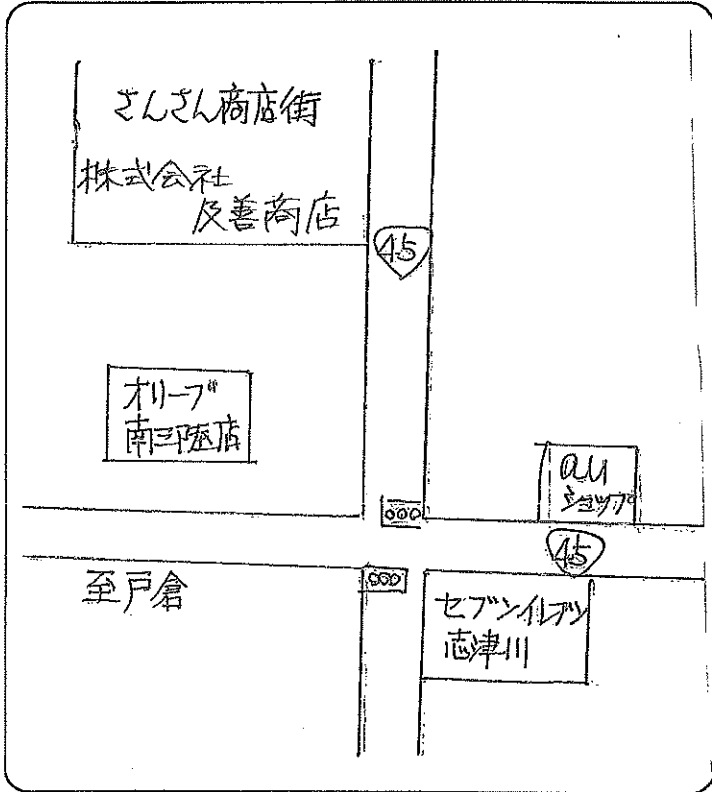 さんさん商店街
株式会社
及善商店
45
オリーブ
南三陸店
au
ショップ
45
至戸倉
セブンイレブン
志津川